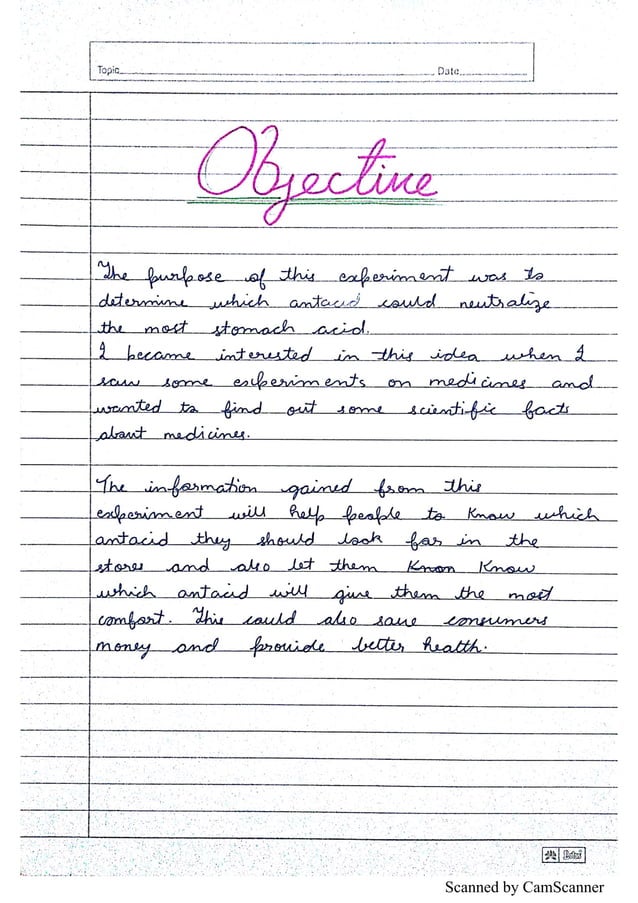 Topic
Date
Objective
The purpose of this experiment was to
determine which antacid could neutralize
the most stomach acid.
I became interested in this idea when I
saw some experiments on medicines and
wanted to find out some scientific facts
about medicines.
The information gained from this
experiment will help people to know which
antacid they should look for in the
stores and also let them Knon Know
which antacid will give them the most
comfort. This could also save consumers
money and provide better health.
Scanned by CamScanner